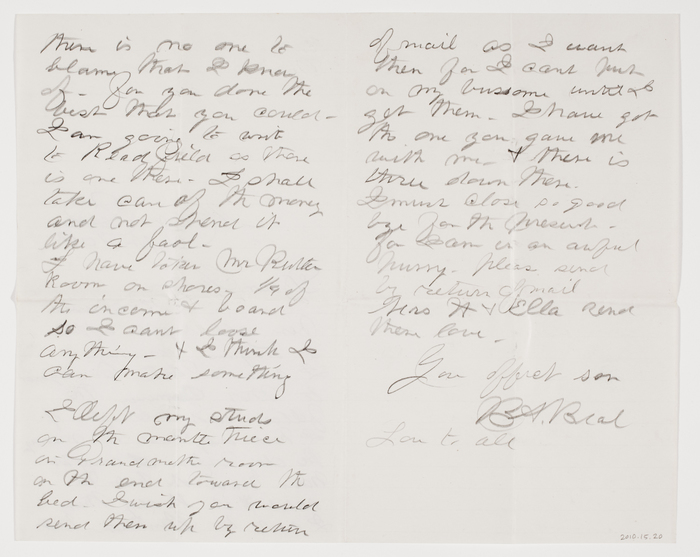 there is no one to
blame that I know
of - for you done the
best that you could -
I am going to write
to Readfield as there
is one there - I shall
take care of the money
and not spend it
like a fool -
I have taken Mr
Room on shares, 1/2 of
the income & board
so I cant loose
anything - & I think I
can make something
I left my studs
on the mantle piece
in Grandmothe room
on the end toward the
bed. I wish you would
send them up by return
of mail as I want
them for I cant put
on my bussome until I
get them - I have got
the one you gave me
with me - & there is
three down there.
I must close so good
bye for the present -
for I am in an awful
hurry - pleas send
by return of mail
A & Ella send
there love -
You son
B A. Beal
Love to all
2010.15.20